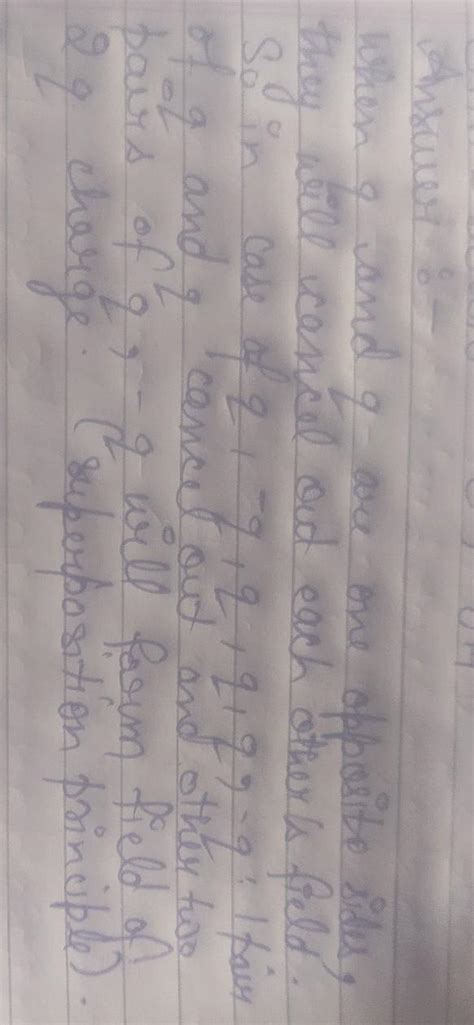 Answer :-
when q and q are one opposite sides,
they will cancel out each other's field.
So in case of q, -q, q, q, q, -q; 1 pair
of q and q cancel out and other two
pairs of q, -q will form field of
2q charge. (superposition principle).